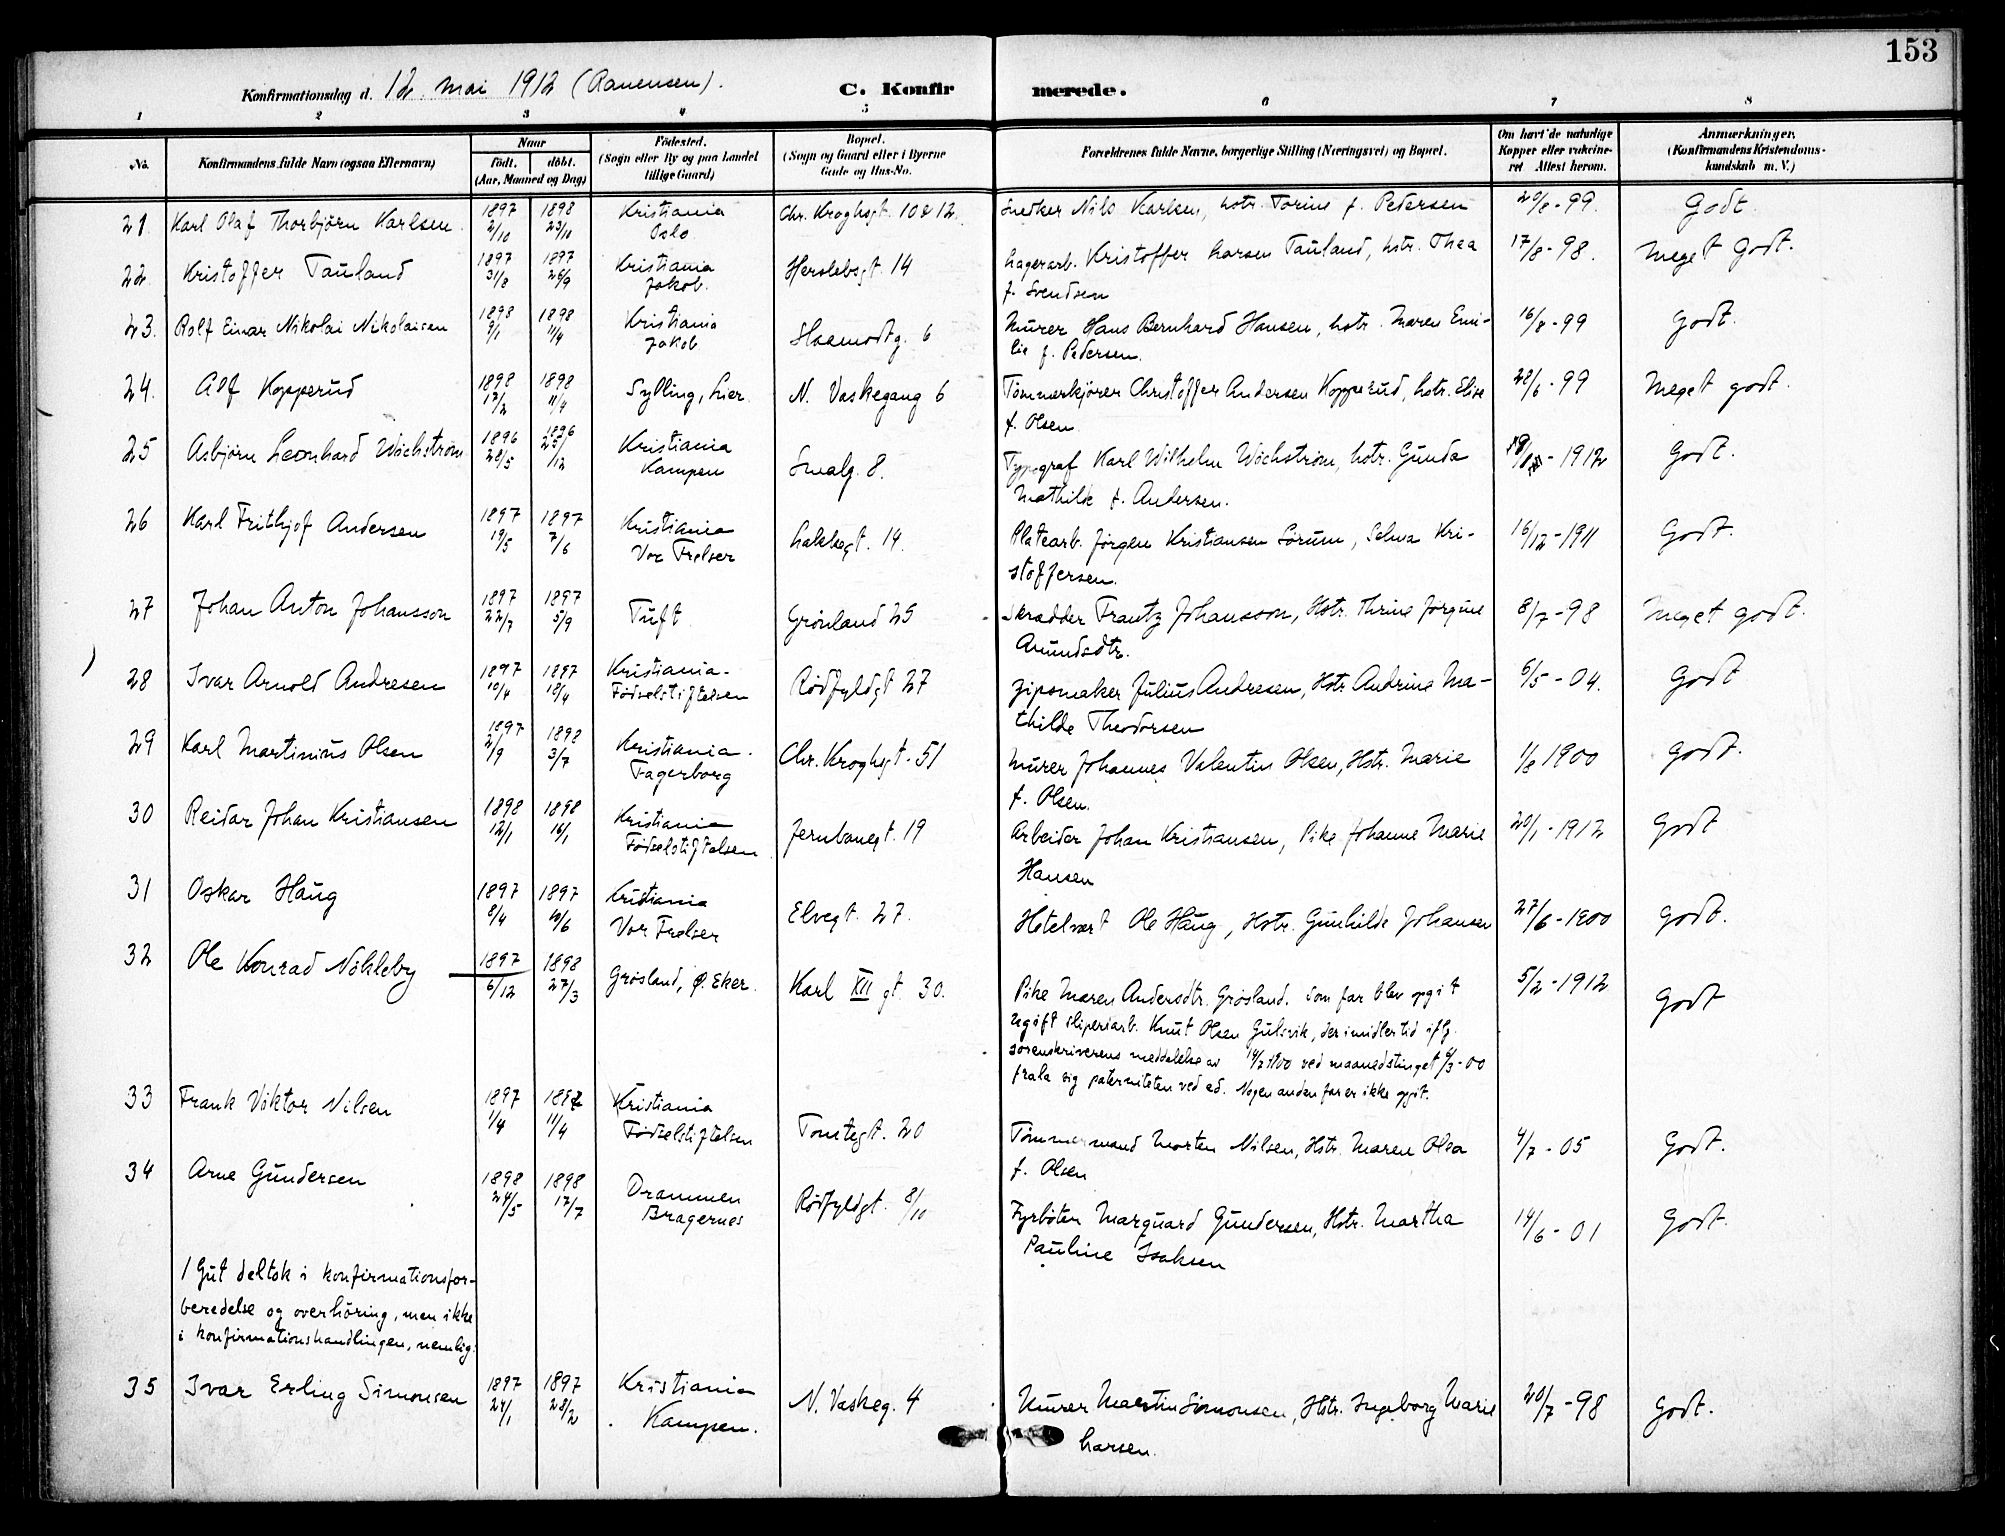 153
Konfirmationsdag d. 12. mai 1912
C. Konfirmerede.
1 2 3 4 5 6 7 8
No.
Konfirmandens fulde Navn (ogsaa Efternavn)
Naar
födt. döbt.
(Aar, Maaned og Dag)
Födested.
(Sogn eller By og paa Landet
tillige Gaard)
Bopæl.
(Sogn og Gaard eller i Byerne
Gade og Hus-No.
Forældrenes fulde Navne, borgerlige Stilling (Næringsvei) og Bopæl.
Om havt de naturlige
Kopper eller vakcine-
ret Attest herom.
Anmærkninger.
(Konfirmandens Kristendoms-
kundskab m. V.)
21 Karl Olaf Thorbjörn Karlsen 1897 1898 Kristiania Chr. Kroghsgt. 10 & 12. Snedker Nils Karlsen, hstr. Torine f. Pedersen 20/8-99. Godt.
2/10 23/10 Oslo.
22 Kristoffer Tauland 1897 1897 Kristiania Herslebsgt. 14 Lagerarb. Kristoffer Larsen Tauland, hstr. Thea 17/8-98. Meget Godt.
31/8 26/9 Jakob. f. Svendsen
23. Rolf Einar Nikolai Nikolaisen 1898 1898 Kristiania 6 Murer Hans Bernhard Hansen, hstr. Maren Emi- 16/8-99 Godt.
9/1 11/4 Jakob lie f. Pedersen.
24. Alf Kopperud 1898 1898 Sylling, Lier. N. Vaskegang 6 Tömmerkjörer Christoffer Andersen Kopperud, hstr. Elise 28/6-99 Meget godt.
12/2 11/4 f. Olsen
25 Asbjørn Leonhard Wöchström 1896 1896 Kristiania Smalg. 8. Typograf Karl Wilhelm Wöchström, hstr. Gunda -1912 Godt.
28/5 25/12 Kampen Mathilde f. Andersen.
26 Karl Frithjof Andersen 1897 1897 Kristiania Lakkegt. 14. Platearb. Jørgen Kristiansen Sörum, Selma Kri- 16/12-1911 Godt.
19/5 7/6 Vor Frelser stoffersen.
27 Johan Anton Johansson 1897 1897 Tuft Grönland 25 Skrædder Frantz Johansson, Hstr. Thrine Jørgine 8/7-98 Meget godt.
22/7 5/9 Amundsdtr.
28 Ivar Arnold Andresen 1897 1897 Kristiania- Rødfyldgt 27 Gipsmaker Julius Andresen, Hstr Andrine Ma- 6/5-04. Godt
10/4 18/4 Fødselstiftelsen thilde Theodorsen
29 Karl Martinius Olsen 1897 1898 Kristiania. Chr. Kroghsgt. 51 Murer Johannes Valentin Olsen, Hstr. Marie 1/8 1900 Godt.
2/9 3/7 Fagerborg f. Olsen.
30 Reidar Johan Kristiansen 1898 1898 Kristiania Jernbanegt. 19 Arbeider Johan Kristiansen, Pike Johanne Marie 20/1-1912 Godt
12/1 16/1 Fødselstiftelsen. Hansen
31 Oskar Haug 1897 1897 Kristiania Elvegt. 27. Hotelvært Ole Haug, Hstr. Gunhilde Johansen 27/6-1900 Godt.
8/4 10/6 Vor Frelser
32 Ole Konrad Nökleby 1897 1898 Grøsland, Ø. Eker. Karl XII gt. 30. Pike Maren Andersdtr. Grøsland. Som far blev opgit 5/2-1912 Godt
6/12 27/3 ugift sliperiarb. Knut Olsen Gulsvik, der imidlertid iflg.
sorenskriverens meddelelse av 14/7 1900 ved maanedstinget 6/3-00
frala sig paterniteten ved ed. Nogen anden far er ikke opgit.
33 Frank Viktor Nilsen 1897 1897 Kristiania Tomtegt. 20 Tømmermand Morten Nilsen, Hstr. Maren Olea 4/7-05 Godt.
1/4 11/4 Fødselstiftelsen f. Olsen
34 Arne Gundersen 1898 1898 Drammen Rødfyldgt. 8/10 Fyrböter Marquard Gundersen, Hstr. Martha 14/6-01 Godt.
24/5 17/7 Bragernes Pauline Isaksen
1 Gut deltok i konfirmationsfor-
beredelse og overhöring, men ikke
i konfirmationshandlingen, nemlig:
35 Ivar Erling Simonsen 1897 1897 Kristiania N. Vaskeg. 4 Murer Martin Simonsen, Hstr. Ingeborg Marie 20/7-98 Godt.
24/1 28/2 Kampen. Larsen.